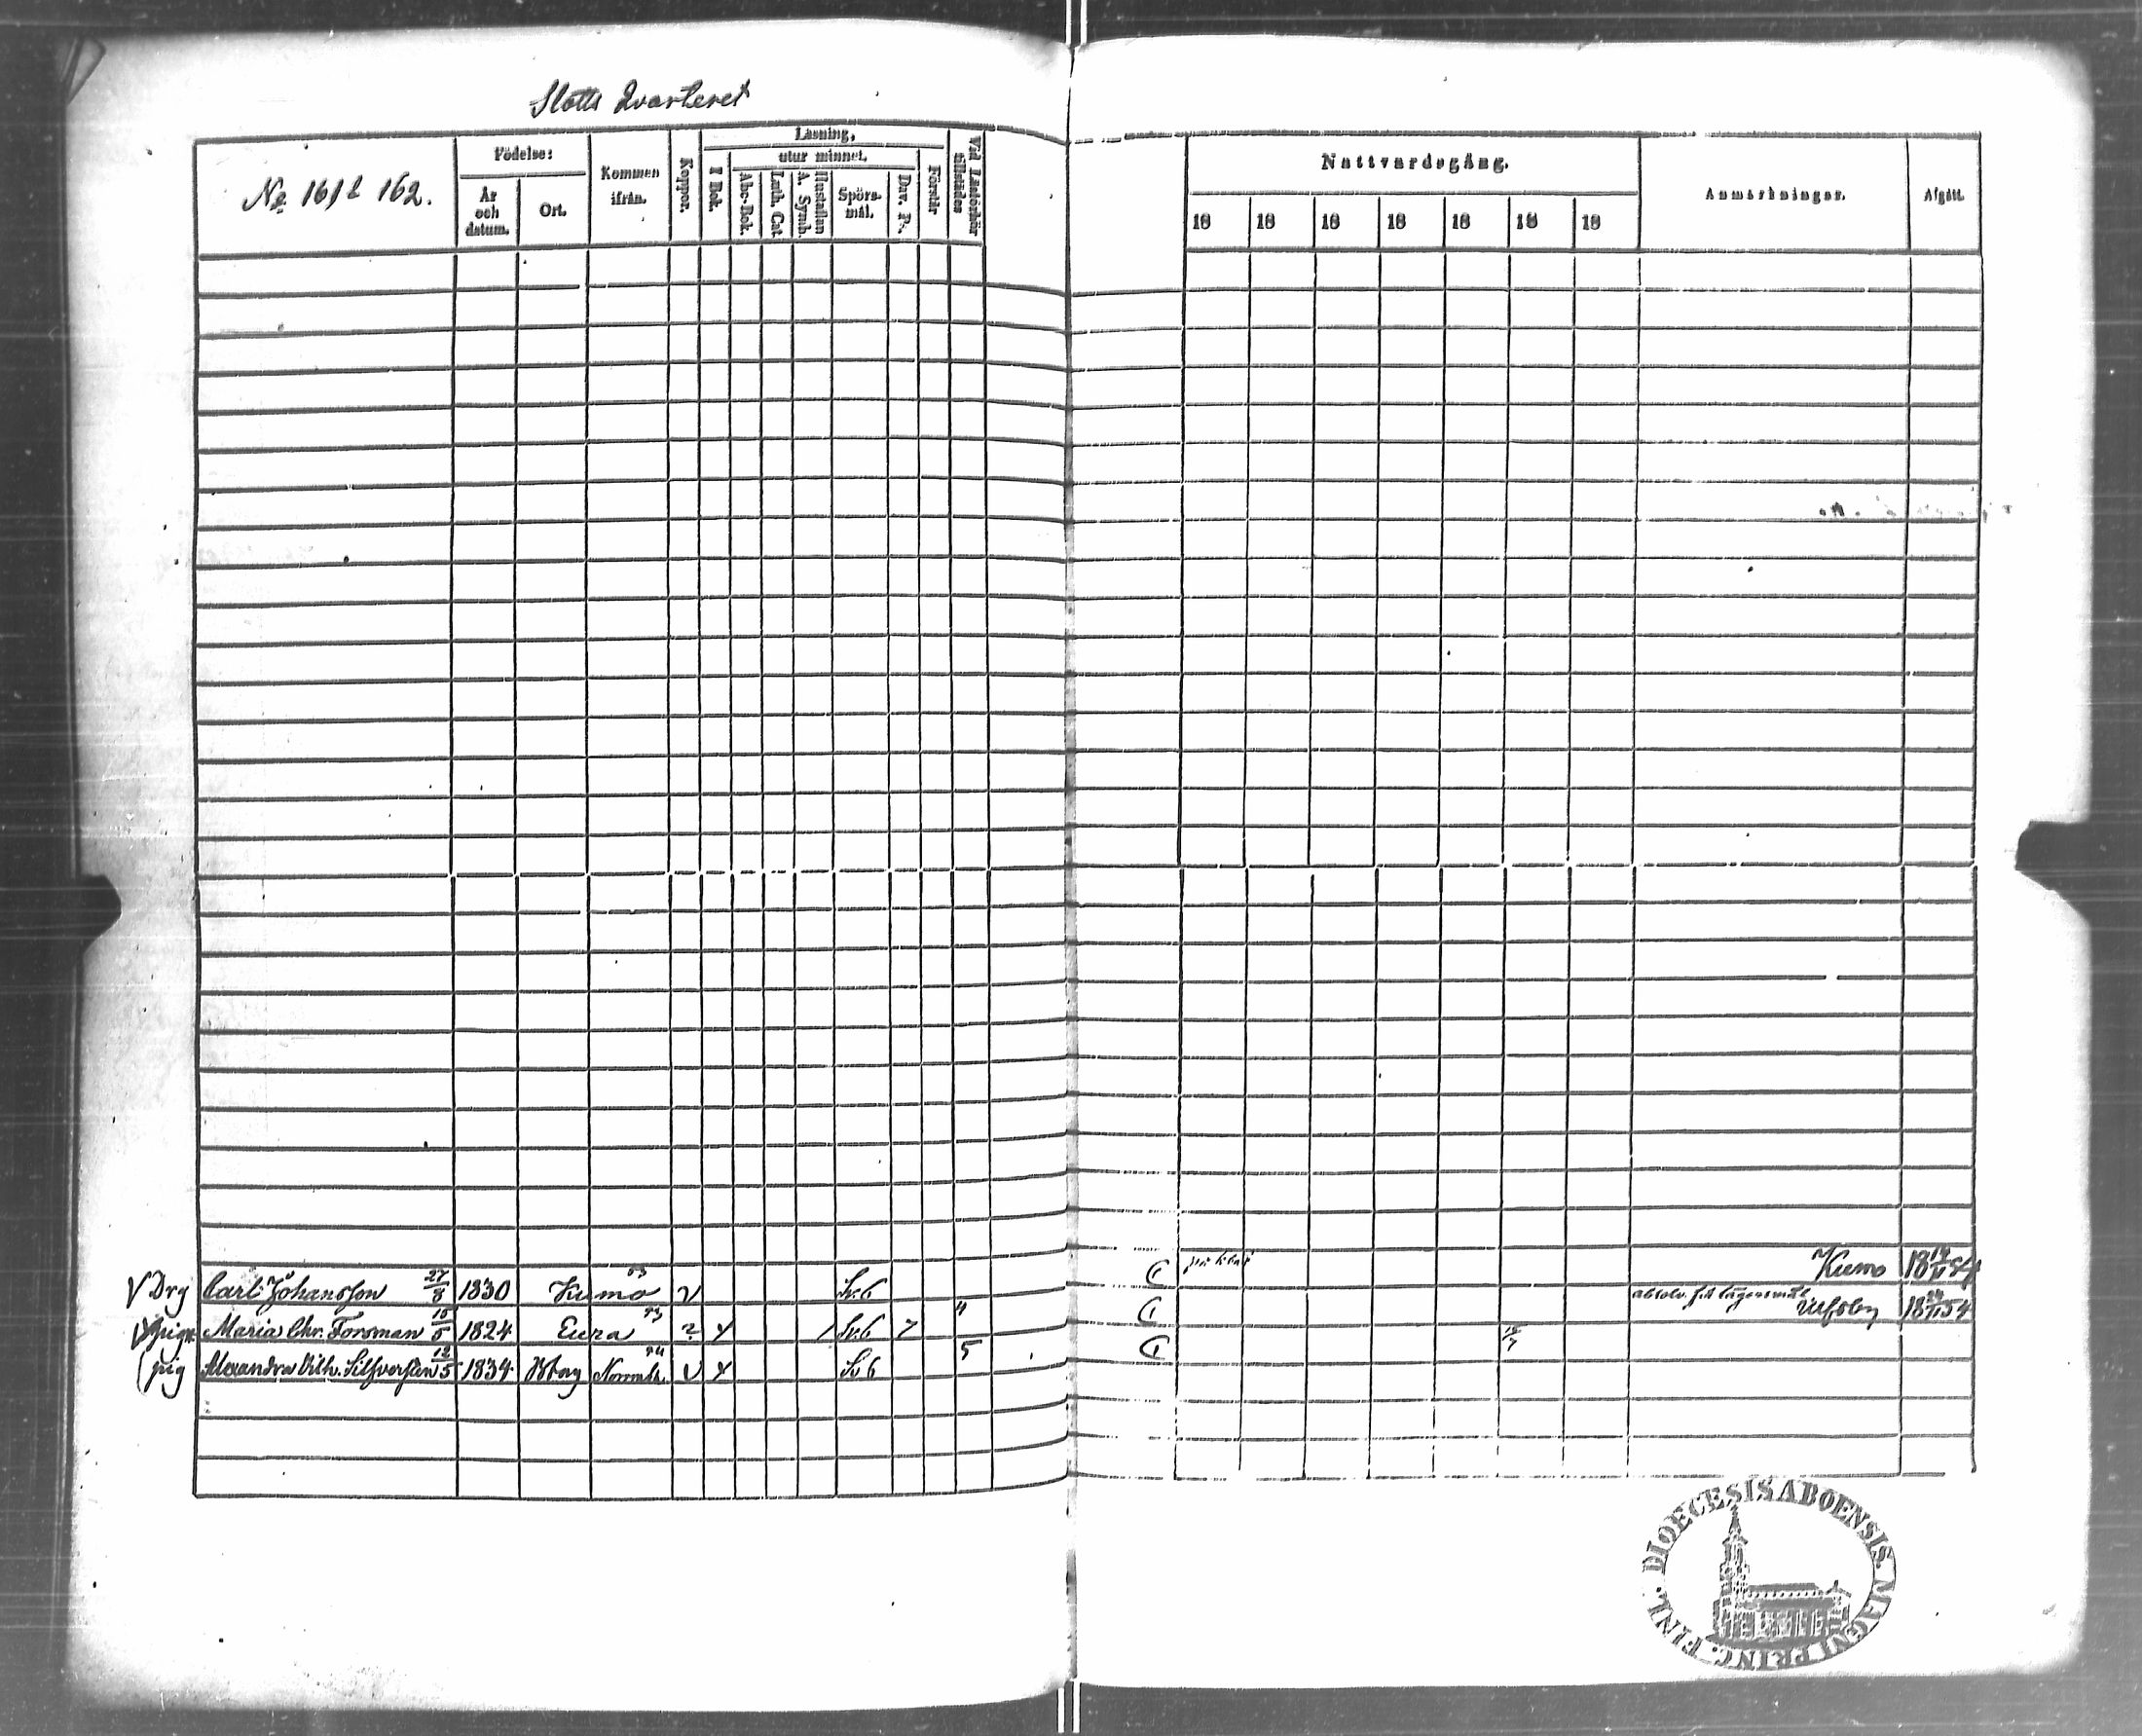 Slotts Qvarteret
No 161 & 162.
Födelse:
År och datum.
Ort.
Kommen ifrån.
Koppor.
Läsning,
I Bok.
utur minnet.
Abc-Bok.
Luth. Cat.
Hustaflan A. Symb.
Spörsmål.
Dav. Ps.
Förstår
Vid Läsförhör tillstädes
Nattvardsgång.
18 18 18 18 18 18 18
Anmärkningar.
Afgått.
V Drg Carl Johansson 27/8 1830 Kumo 53 v Sv. 6 Kumo 18 14/11 54
pig Maria Chr. Forsman 15/5 1824 Eura 53 2 x / Sv. 6 7 4 absolv. f. lägersmål Ulfsby 18 24/11 54
pig Alexandra Vilh. Silfversten 12/5 1834 Bborg 54 v x Sv 6 5
DIOECESIS ABOENSIS. MAGNI PRINC. FINL.